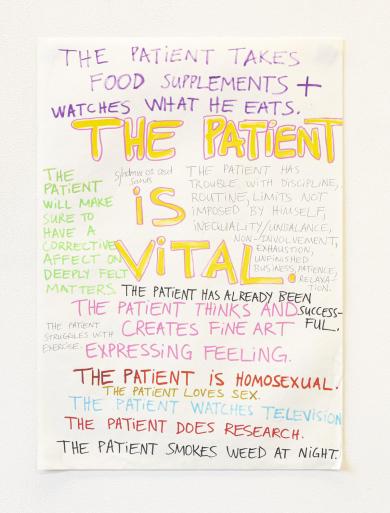 THE PATIENT TAKES
FOOD SUPPLEMENTS +
WATCHES WHAT HE EATS.
THE PATIENT
IS
VITAL.
THE
PATIENT
WILL MAKE
SURE TO
HAVE A
CORRECTIVE
AFFECT ON
DEEPLY FELT
MATTERS.
THE PATIENT HAS
TROUBLE WITH DISCIPLINE,
ROUTINE, LIMITS NOT
IMPOSED BY HIMSELF,
INEQUALITY/UNBALANCE,
NON-INVOLVEMENT,
EXHAUSTION,
UNFINISHED
BUSINESS, PATIENCE,
RELAXA-
TION.
THE PATIENT HAS ALREADY BEEN
SUCCESS-
FUL.
THE PATIENT THINKS AND
CREATES FINE ART
EXPRESSING FEELING.
THE PATIENT
STRUGGLES WITH
EXERCISE.
THE PATIENT IS HOMOSEXUAL.
THE PATIENT LOVES SEX.
THE PATIENT WATCHES TELEVISION
THE PATIENT DOES RESEARCH.
THE PATIENT SMOKES WEED AT NIGHT.